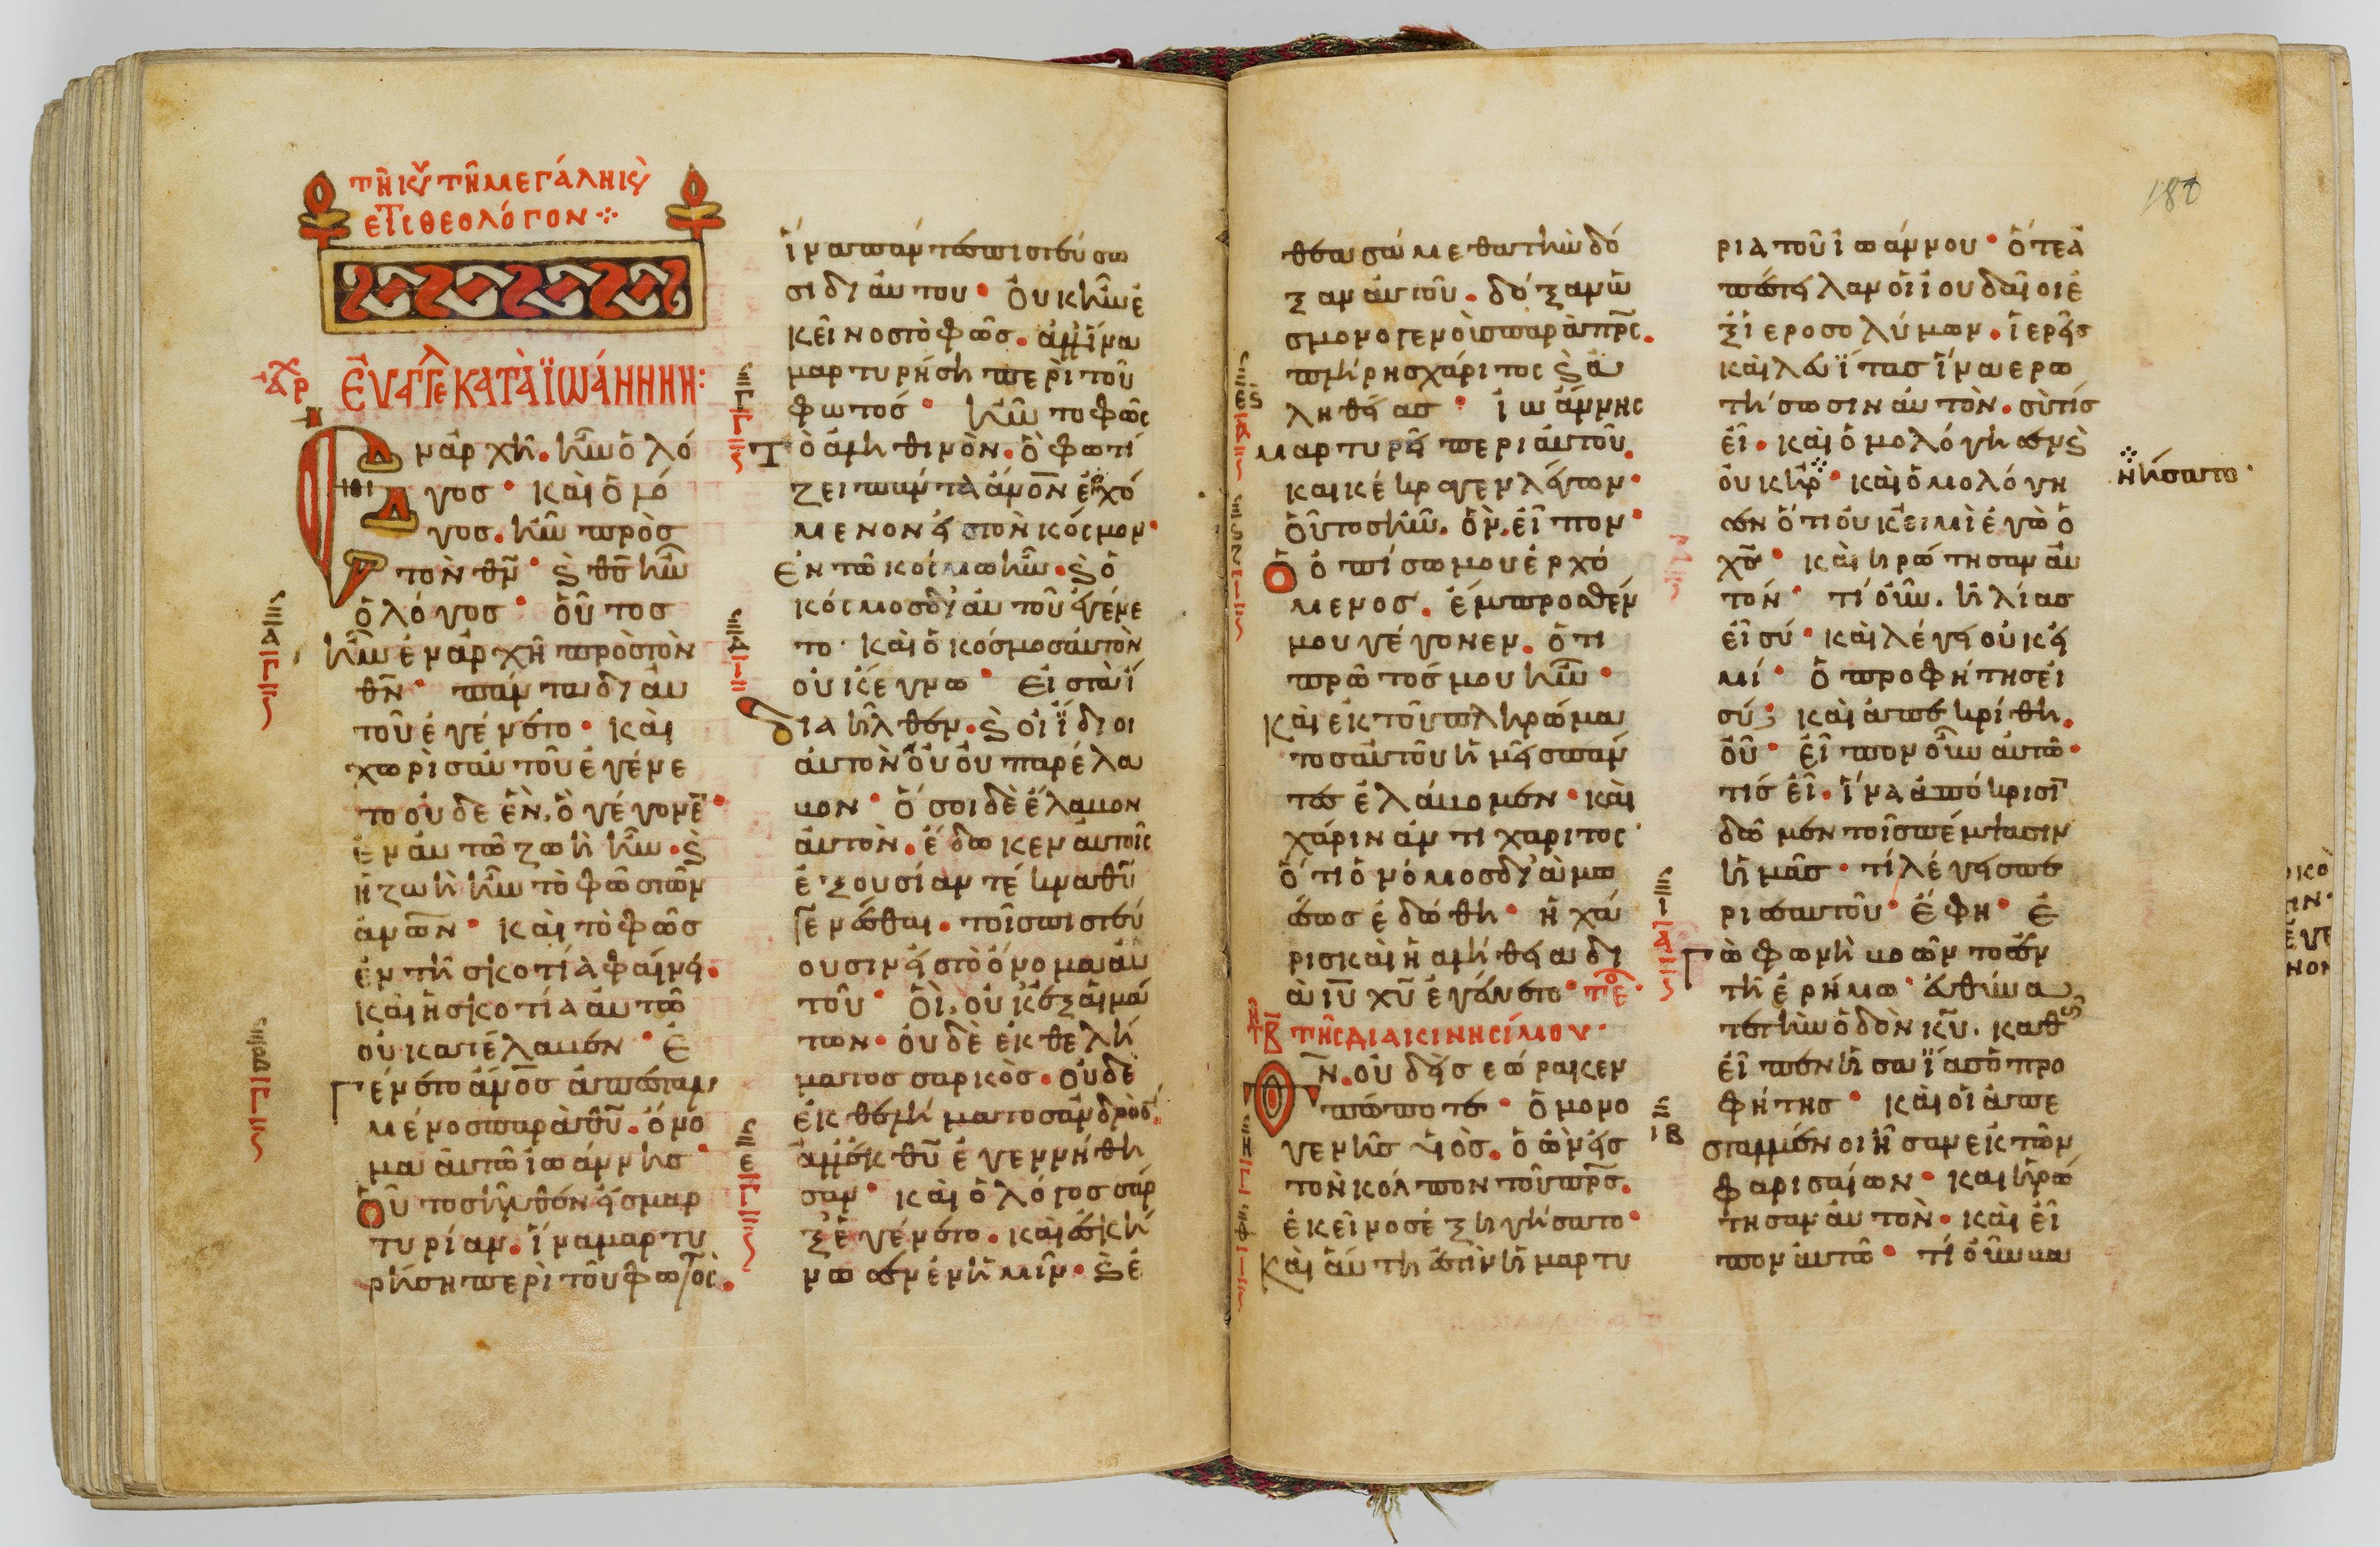 τῇ κυ τῇ μεγάλη κυ
εἰς θεολόγον
ἀρχ
Εὐαγγε κατὰ ϊωάννην:
Εν ἀρχῆ. ἦν ὁ λό
γος· καὶ ὁ λό
γος. ἦν πρὸς
τὸν θν· ϗ θς ἦν
ὁ λόγος· οὗτος
ἦν ἐν ἀρχῆ πρὸς τὸν
θν· πάντα δι αὐ
τοῦ ἐγένετο· καὶ
χωρὶς αὐτοῦ ἐγένε
το οὐδε ἓν. ὃ γέγονεν·
ἐν αὐτῶ ζωὴ ἦν. ϗ
ἡ ζωὴ ἦν τὸ φῶς τῶν
ἀνων· καὶ τὸ φῶς
ἐν τῆ σκοτία φαίνει.
καὶ ἡ σκοτία αὐτῶ
οὐ κατέλαβεν· Ἐ
γένετο ἀνος ἀπεσταλ
μένος παρὰ θυ. ὄνο
μα αὐτῶ ἰωάννης·
Οὗτος ἦλθεν εἰς μαρ
τυρίαν. ἵνα μαρτυ
ρήση περὶ τοῦ φωτός.
ἵνα πάντες πιστεύσω
σι δι αὐτου· Οὐκ ἦν ἐ
κεῖνος τὸ φῶς. ἀλλ ἵνα
μαρτυρήση περὶ τοῦ
φωτός· ἦν το φῶς
Τὸ ἀληθινὸν. ὃ φωτί
ζει πάντα ἀνον ἐρχό
μενον εἰς τὸν κόσμον·
Ἐν τῶ κόσμω ἦν. ϗ ὁ
κόσμος δι αὐτοῦ ἐγένε
το· καὶ ὁ κόσμος αὐτὸν
οὐκ ἔγνω· Εἰς τὰ ἴ
δια ἦλθεν. ϗ οἱ ἴδιοι
αὐτὸν οὐ παρέλα
βον· ὅσοι δὲ ἔλαβον
αὐτὸν. ἔδωκεν αὐτοῖς
ἐξουσίαν τέκνα θυ
γενέσθαι. τοῖς πιστεύ
ουσιν εἰς τὸ ὄνομα αὐ
τοῦ· οἳ, οὐκ ἐξ αἱμά
των. οὐδὲ ἐκ θελή
ματος σαρκὸς. οὐδὲ
ἐκ θελήματος ἀνδρὸς.
ἀλλ ἐκ θυ ἐγεννήθη
σαν· καὶ ὁ λόγος σάρ
ξ ἐγένετο. καὶ ἐσκή
νωσεν ἐν ἡμῖν. ϗ ἐ
θεασάμεθα τὴν δό
ξαν αὐτοῦ. δόξαν ὡ
ς μονογενοὺς παρὰ πρς.
πλήρης χάριτος ϗ ἀ
ληθείας· ἰωάννης
μαρτυρεῖ περι αὐτοῦ.
και κέκραγεν λέγων·
οὗτος ἦν. ὃν εἶπον·
Ὁ ὀπίσω μου ἐρχό
μενος. ἔμπροσθέν
μου γέγονεν. ὅτι
πρῶτός μου ἦν·
Καὶ ἐκ τοῦ πληρώμα
τος αὐτοῦ ἡμεῖς πάν
τες ἐλάβομεν. καὶ
χάριν ἀντι χάριτος·
ὅτι ὁ νόμος δι ἀ μω
σέως ἐδόθη· ἡ χά
ρις καὶ ἡ ἀλήθεια δι
ὰ ιυ χυ ἐγένετο· τε
τῆς διακινησίμου·
Θν. οὐδεὶς εώρακεν
πώποτε· ὁ μονο
γενὴς υἱὸς. ὁ ὢν εἰς
τὸν κόλπον τοῦ πρς.
ἐκεῖνος ἐξηγήσατο·
Καὶ αὕτη ἐστὶν ἡ μαρτυ
ρια τοῦ ἰωάννου· ὅτε ἀ
πέστειλαν οἱ ἰουδαῖοι ἐ
ξ ἱεροσολύμων. ἱερεῖς
καὶ λευϊτας ἵνα ερω
τήσωσιν αὐτὸν. σὺ τίς
εἶ. καὶ ὁμολόγησεν ϗ
οὐκ ἠρ· καὶ ὁμολόγη
σεν ὅτι οὐκ εἰμὶ ἐγὼ ὁ
χς· καὶ ἠρώτησαν αὐ
τόν· τί οὖν. ἠλίας
εἶ σύ· καὶ λέγει οὐκ εἰ
μί· ὁ προφήτης εἶ
σύ; καὶ ἀπεκρίθη.
οὔ· εἶπον οὖν αὐτῶ·
τίς εἶ. ἵνα ἀπόκρισι
δῶμεν τοῖς πέμψασιν
ἡμᾶς· τί λέγεις πε
ρι σεαυτοῦ· ἔφη· Ἐ
Γὼ φωνὴ βοῶντος ἐν
τῆ ἐρήμω· εὐθύνα
τε τὴν ὁδὸν κυ. καθὼς
εἶπεν ἡσαΐας ὁ προ
φήτης· καὶ οἱ ἀπε
σταλμένοι ἦσαν ἐκ τῶν
φαρισαίων· καὶ ἠρώ
τησαν αὐτὸν. καὶ εἶ
πον αὐτῶ· τί οὖν βα
ἠρνήσατο·
180